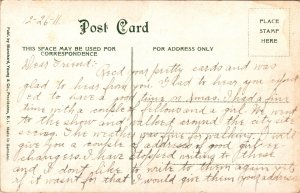 12-26-11
Post Card
PLACE
STAMP
HERE
THIS SPACE MAY BE USED FOR
CORRESPONDENCE
FOR ADDRESS ONLY
Dear Friend:- Rec'd your pretty cards and was
glad to hear from you. I am glad to hear you
had to have a good time on Xmas. I had a fine
time with a couple of fellows and a girl we went
to the show and walked around the city
The weather was fine for walking. I will
give you a couple of addresses of good girl ex-
changers. I have stopped writing to these
and I don't like to write to them again only
if it wasn't for that I would give them your address